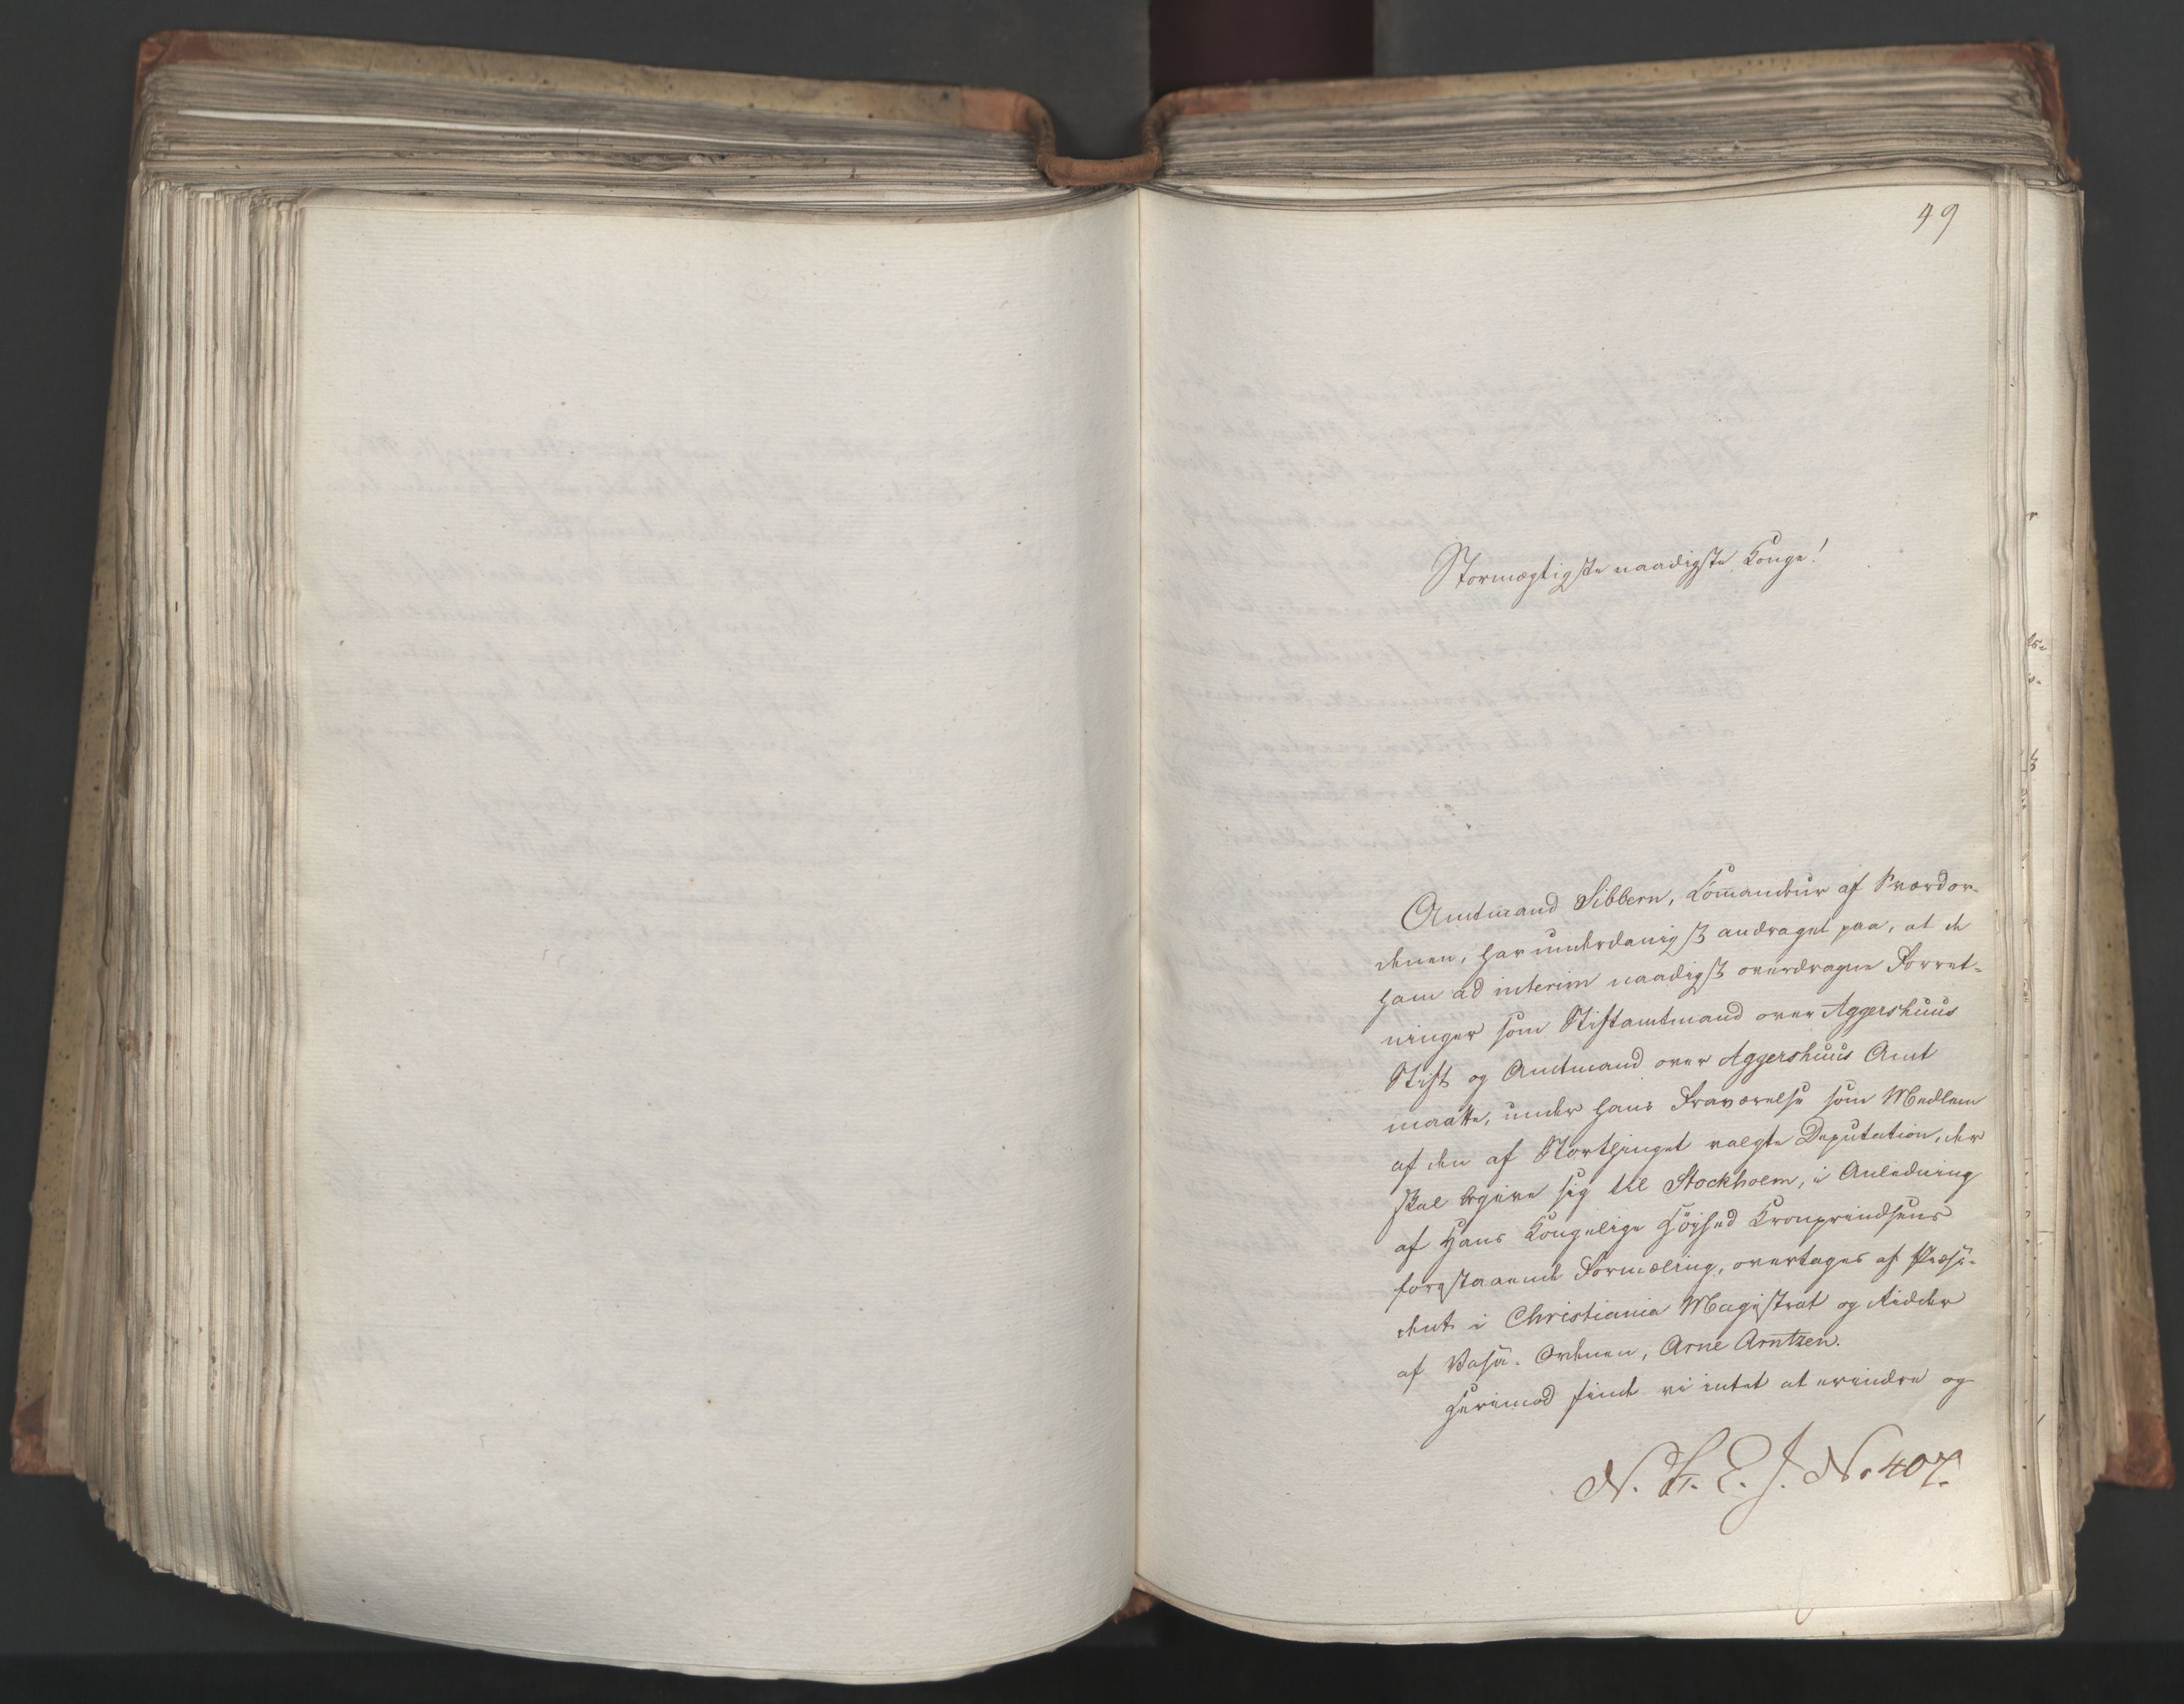 49
Stormægtigste naadigste Konge!
Amtmand Sibbern, Com̄andeur af Sværdor-
denen, har underdanigst andraget paa, at de
ham ad interim naadigst overdragne Forret-
ninger som Stiftamtmand over Aggershuus
Stift og Amtmand over Aggershuus Amt
maatte, under hans Fraværelse som Medlem
af den af Storthinget valgte Deputation, der
skal begive sig til Stockholm, i Anledning
af Hans Kongelige Höjhed Kronprindsens
forestaaende Formæling, overtages af Præsi-
dent i Christiania Magistrat og Ridder
af Vasa-Ordenen, Arne Arntzen.
Herimod finde vi intet at erindre og
N. E. J. No 407.